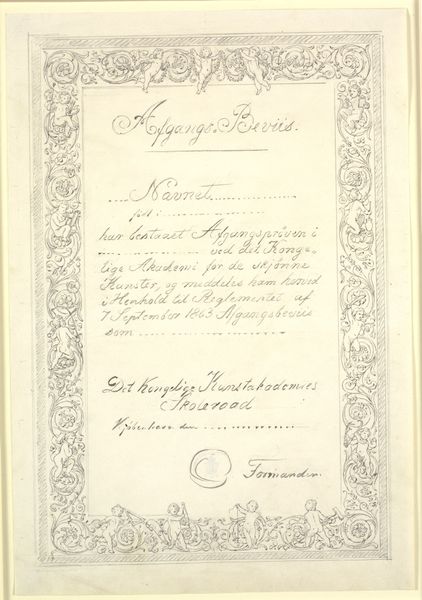 Afgangs-Beviis.
.... Navnet ..............
født i ..................
har bestaaet Afgangsprøven i
.................. ved det Konge-
lige Akademi for de skjønne
Kunster, og meddeles ham herved
i Henhold til Reglementet af
7 September 1865 Afgangsbeviis
som ..................
Det Kongelige Kunstakademies
Skoleraad
Kjøbenhavn den ..................
Formanden.